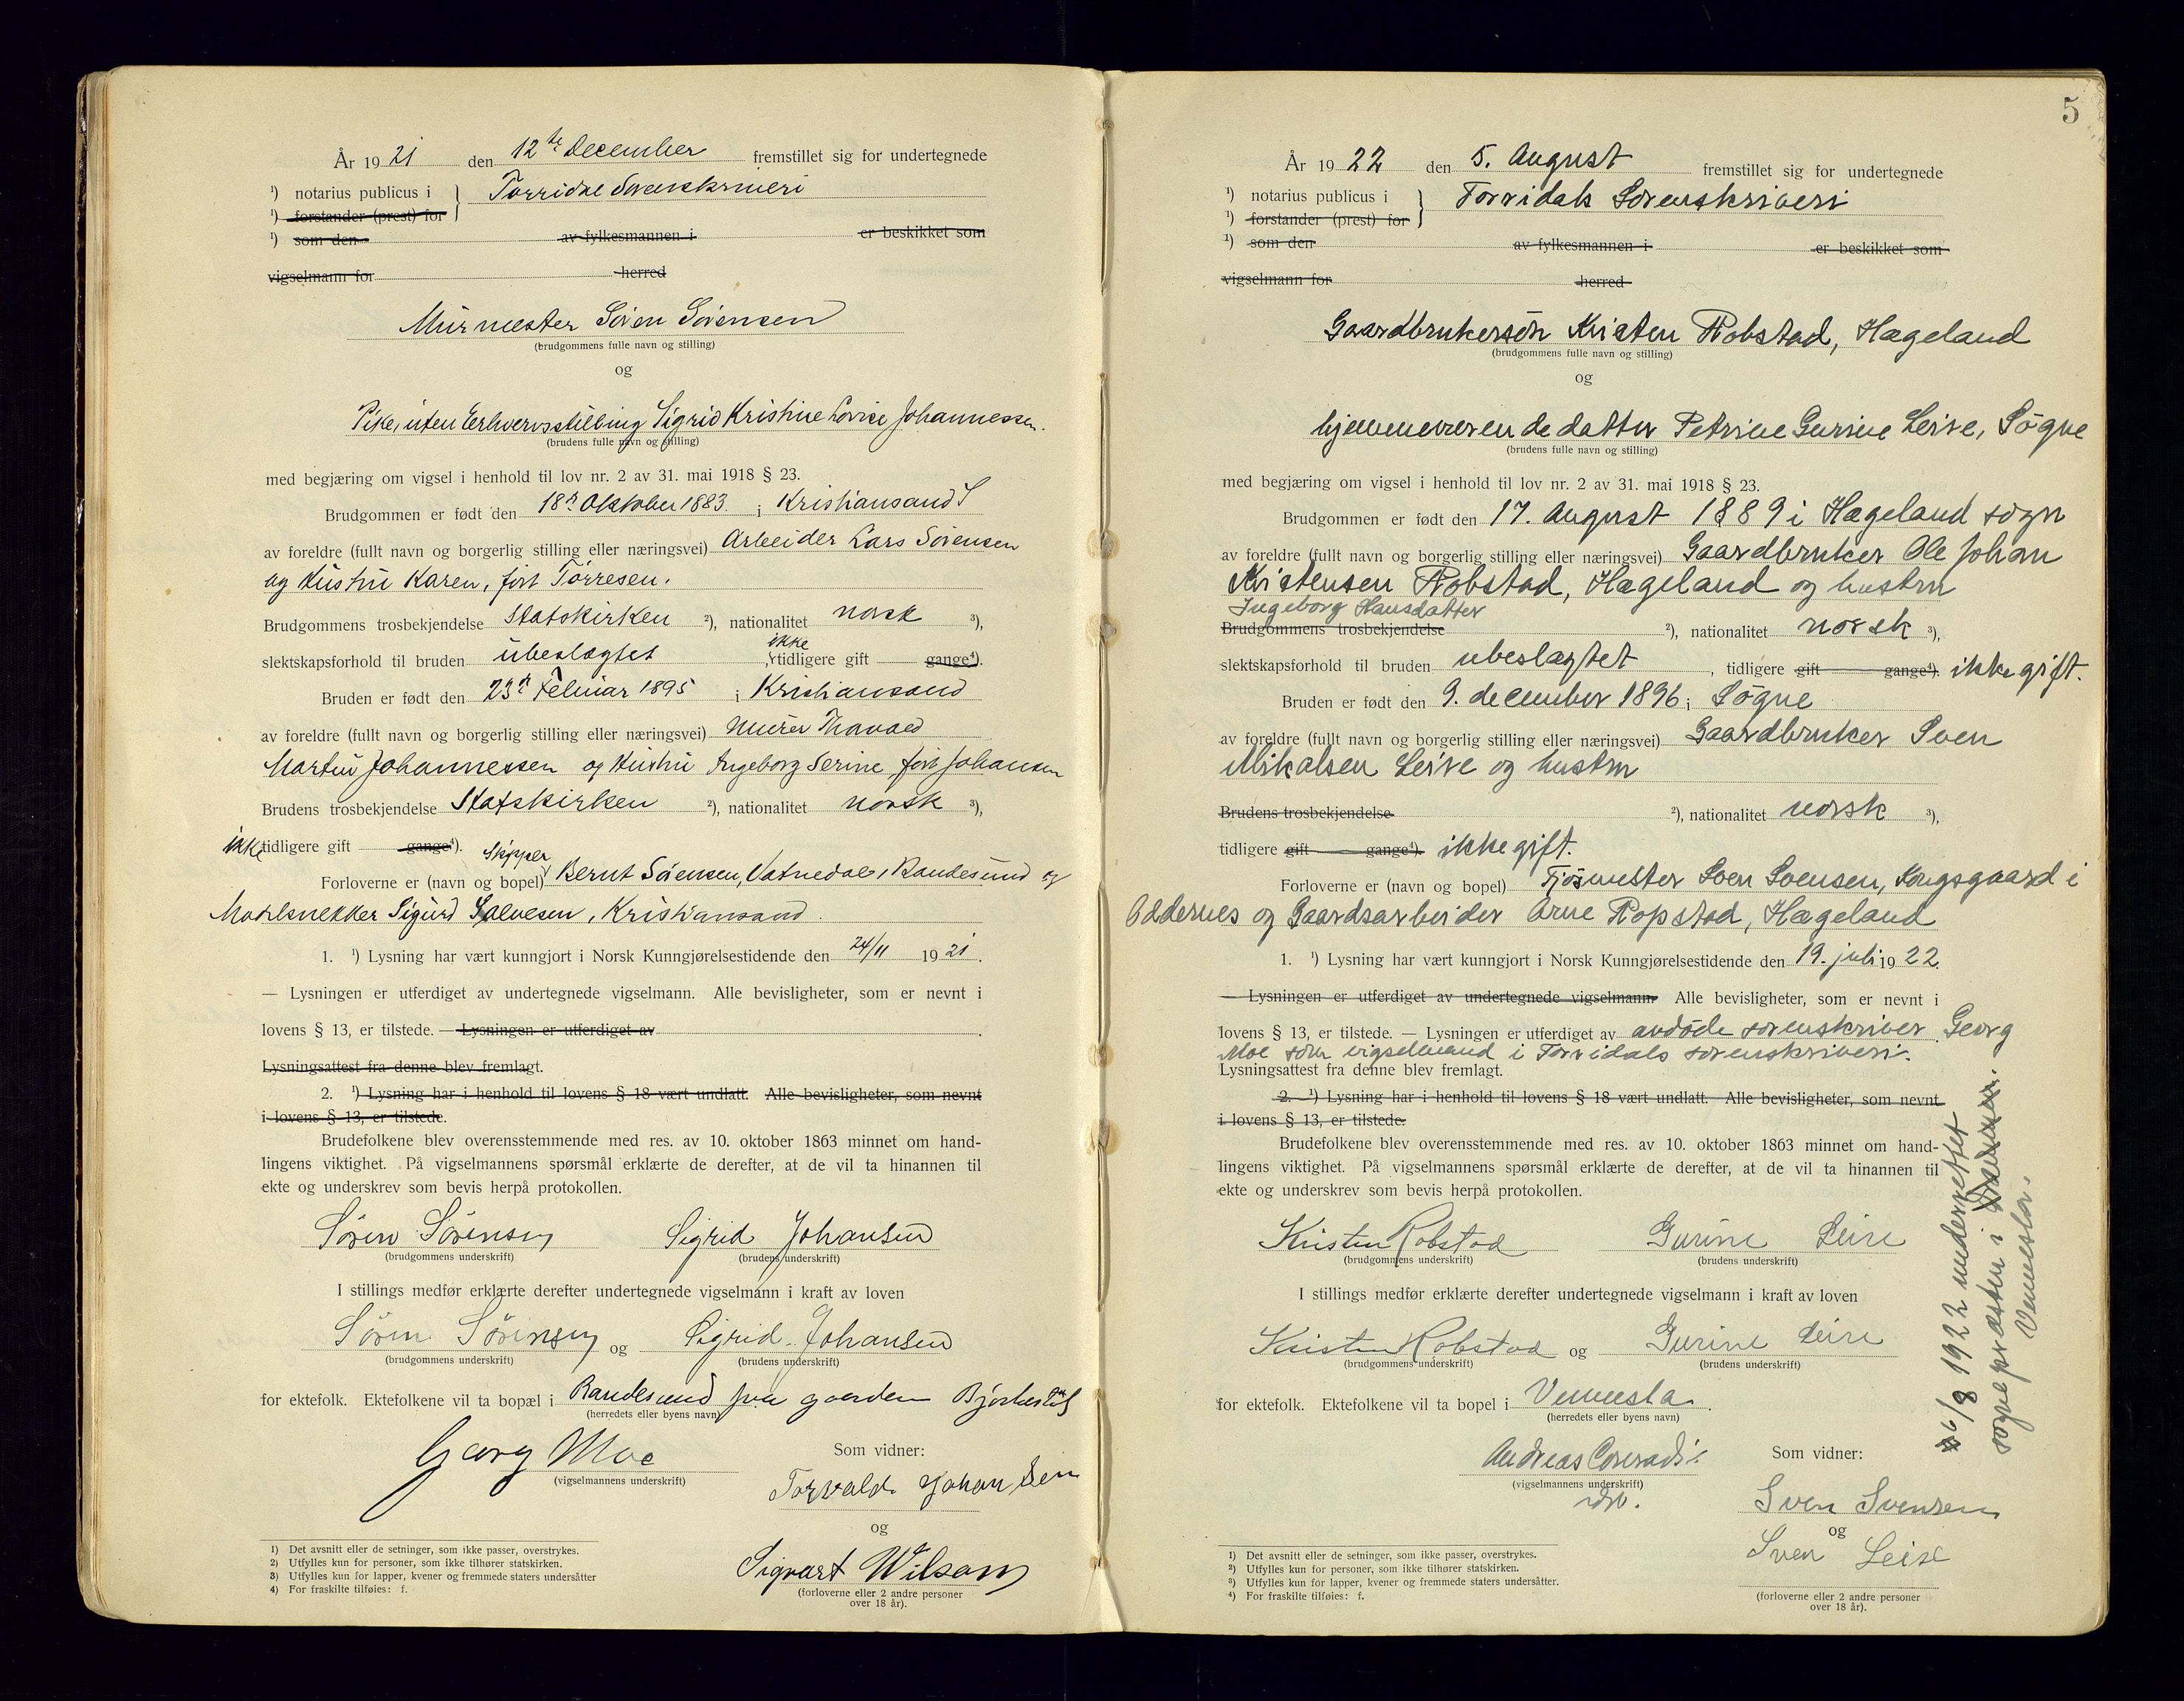 År 19 21 den 12te December fremstillet sig for undertegnede
¹) notarius publicus i } Torridal Sorenskriveri
¹) forstander (prest) for
¹) som den av fylkesmannen i er beskikket som
vigselmann for herred
Murmester Søren Sørensen
(brudgommens fulle navn og stilling)
og
Pike, uten Erhvervsstilling Sigrid Kristine Lovise Johannessen.
(brudens fulle navn og stilling)
med begjæring om vigsel i henhold til lov nr. 2 av 31. mai 1918 § 23.
Brudgommen er født den 18de Oktober 1883 i Kristiansand S
av foreldre (fullt navn og borgerlig stilling eller næringsvei) Arbeider Lars Sørensen
og Hustru Karen, født Tørresen.
Brudgommens trosbekjendelse Statskirken ²), nationalitet norsk ³),
slektskapsforhold til bruden ubeslægtet , ikke tidligere gift gange⁴).
Bruden er født den 23de Februar 1895 i Kristiansand
av foreldre (fullt navn og borgerlig stilling eller næringsvei) Murer
Martin Johannessen og Hustru Ingeborg Serine, født Johansen
Brudens trosbekjendelse Statskirken ²), nationalitet norsk ³),
ikke tidligere gift gange⁴).
Forloverne er (navn og bopel) Skipper Bernt Sørensen, Vatnedal i Randesund og
Møbelsnekker Sigurd Salvesen, Kristiansand.
1. ¹) Lysning har vært kunngjort i Norsk Kunngjørelsestidende den 24/11 19 21.
— Lysningen er utferdiget av undertegnede vigselmann. Alle bevisligheter, som er nevnt i
lovens § 13, er tilstede. — Lysningen er utferdiget av .
Lysningsattest fra denne blev fremlagt.
2. ¹) Lysning har i henhold til lovens § 18 vært undlatt. Alle bevisligheter, som nevnt
i lovens § 13, er tilstede.
Brudefolkene blev overensstemmende med res. av 10. oktober 1863 minnet om hand-
lingens viktighet. På vigselmannens spørsmål erklærte de derefter, at de vil ta hinannen til
ekte og underskrev som bevis herpå protokollen.
Søren Sørensen Sigrid Johansen
(brudgommens underskrift) (brudens underskrift)
I stillings medfør erklærte derefter undertegnede vigselmann i kraft av loven
Søren Sørensen og Sigrid Johansen
(brudgommens underskrift) (brudens underskrift)
for ektefolk. Ektefolkene vil ta bopæl i Randesund paa gaarden
(herredets eller byens navn)
Georg Moe
(vigselmannens underskrift)
Som vidner:
Torvald Johansen
og
Sigvart Wilsom
(forloverne eller 2 andre personer
over 18 år).
1) Det avsnitt eller de setninger, som ikke passer, overstrykes.
2) Utfylles kun for personer, som ikke tilhører statskirken.
3) Utfylles kun for lapper, kvener og fremmede staters undersåtter
4) For fraskilte tilføies: f.
5
År 19 22 den 5. August fremstillet sig for undertegnede
¹) notarius publicus i } Torridals Sorenskriveri
¹) forstander (prest) for
¹) som den av fylkesmannen i er beskikket som
vigselmann for herred
Gaardbrukersøn Kristen Robstad, Hægeland
(brudgommens fulle navn og stilling)
og
hjemmeværende datter Petrine Gurine Leire, Søgne
(brudens fulle navn og stilling)
med begjæring om vigsel i henhold til lov nr. 2 av 31. mai 1918 § 23.
Brudgommen er født den 17. August 1889 i Hægeland sogn
av foreldre (fullt navn og borgerlig stilling eller næringsvei) Gaardbruker Ole Johan
Kristensen Robstad, Hægeland og hustru
Ingeborg Hansdatter
Brudgommens trosbekjendelse ²), nationalitet norsk ³),
slektskapsforhold til bruden ubeslægtet , tidligere gift gange⁴). ikke gift.
Bruden er født den 9. december 1896 i Søgne
av foreldre (fullt navn og borgerlig stilling eller næringsvei) Gaardbruker Sven
Mikalsen Leire og hustru
Brudens trosbekjendelse ²), nationalitet norsk ³),
tidligere gift gange⁴). ikke gift.
Forloverne er (navn og bopel) Fjøsmester Sven Svensen, Kongsgaard i
Oddernes og Gaardsarbeider Arne Ropstad, Hægeland
1. ¹) Lysning har vært kunngjort i Norsk Kunngjørelsestidende den 19. juli 19 22.
— Lysningen er utferdiget av undertegnede vigselmann. Alle bevisligheter, som er nevnt i
lovens § 13, er tilstede. — Lysningen er utferdiget av avdøde sorenskriver Georg
Moe som vigselmand i Torridals sorenskriveri.
Lysningsattest fra denne blev fremlagt.
2. ¹) Lysning har i henhold til lovens § 18 vært undlatt. Alle bevisligheter, som nevnt
i lovens § 13, er tilstede.
Brudefolkene blev overensstemmende med res. av 10. oktober 1863 minnet om hand-
lingens viktighet. På vigselmannens spørsmål erklærte de derefter, at de vil ta hinannen til
ekte og underskrev som bevis herpå protokollen.
Kristen Robstad Gurine Leire
(brudgommens underskrift) (brudens underskrift)
I stillings medfør erklærte derefter undertegnede vigselmann i kraft av loven
Kristen Robstad og Gurine Leire
(brudgommens underskrift) (brudens underskrift)
for ektefolk. Ektefolkene vil ta bopel i Vennesla.
(herredets eller byens navn)
Andreas Conradi
(vigselmannens underskrift)
Som vidner:
Sven Svensen
og
Sven Leire
(forloverne eller 2 andre personer
over 18 år).
1) Det avsnitt eller de setninger, som ikke passer, overstrykes.
2) Utfylles kun for personer, som ikke tilhører statskirken.
3) Utfylles kun for lapper, kvener og fremmede staters undersåtter.
4) For fraskilte tilføies: f.
6/8 1922 underrettet
sognepræsten i
Vennesla.